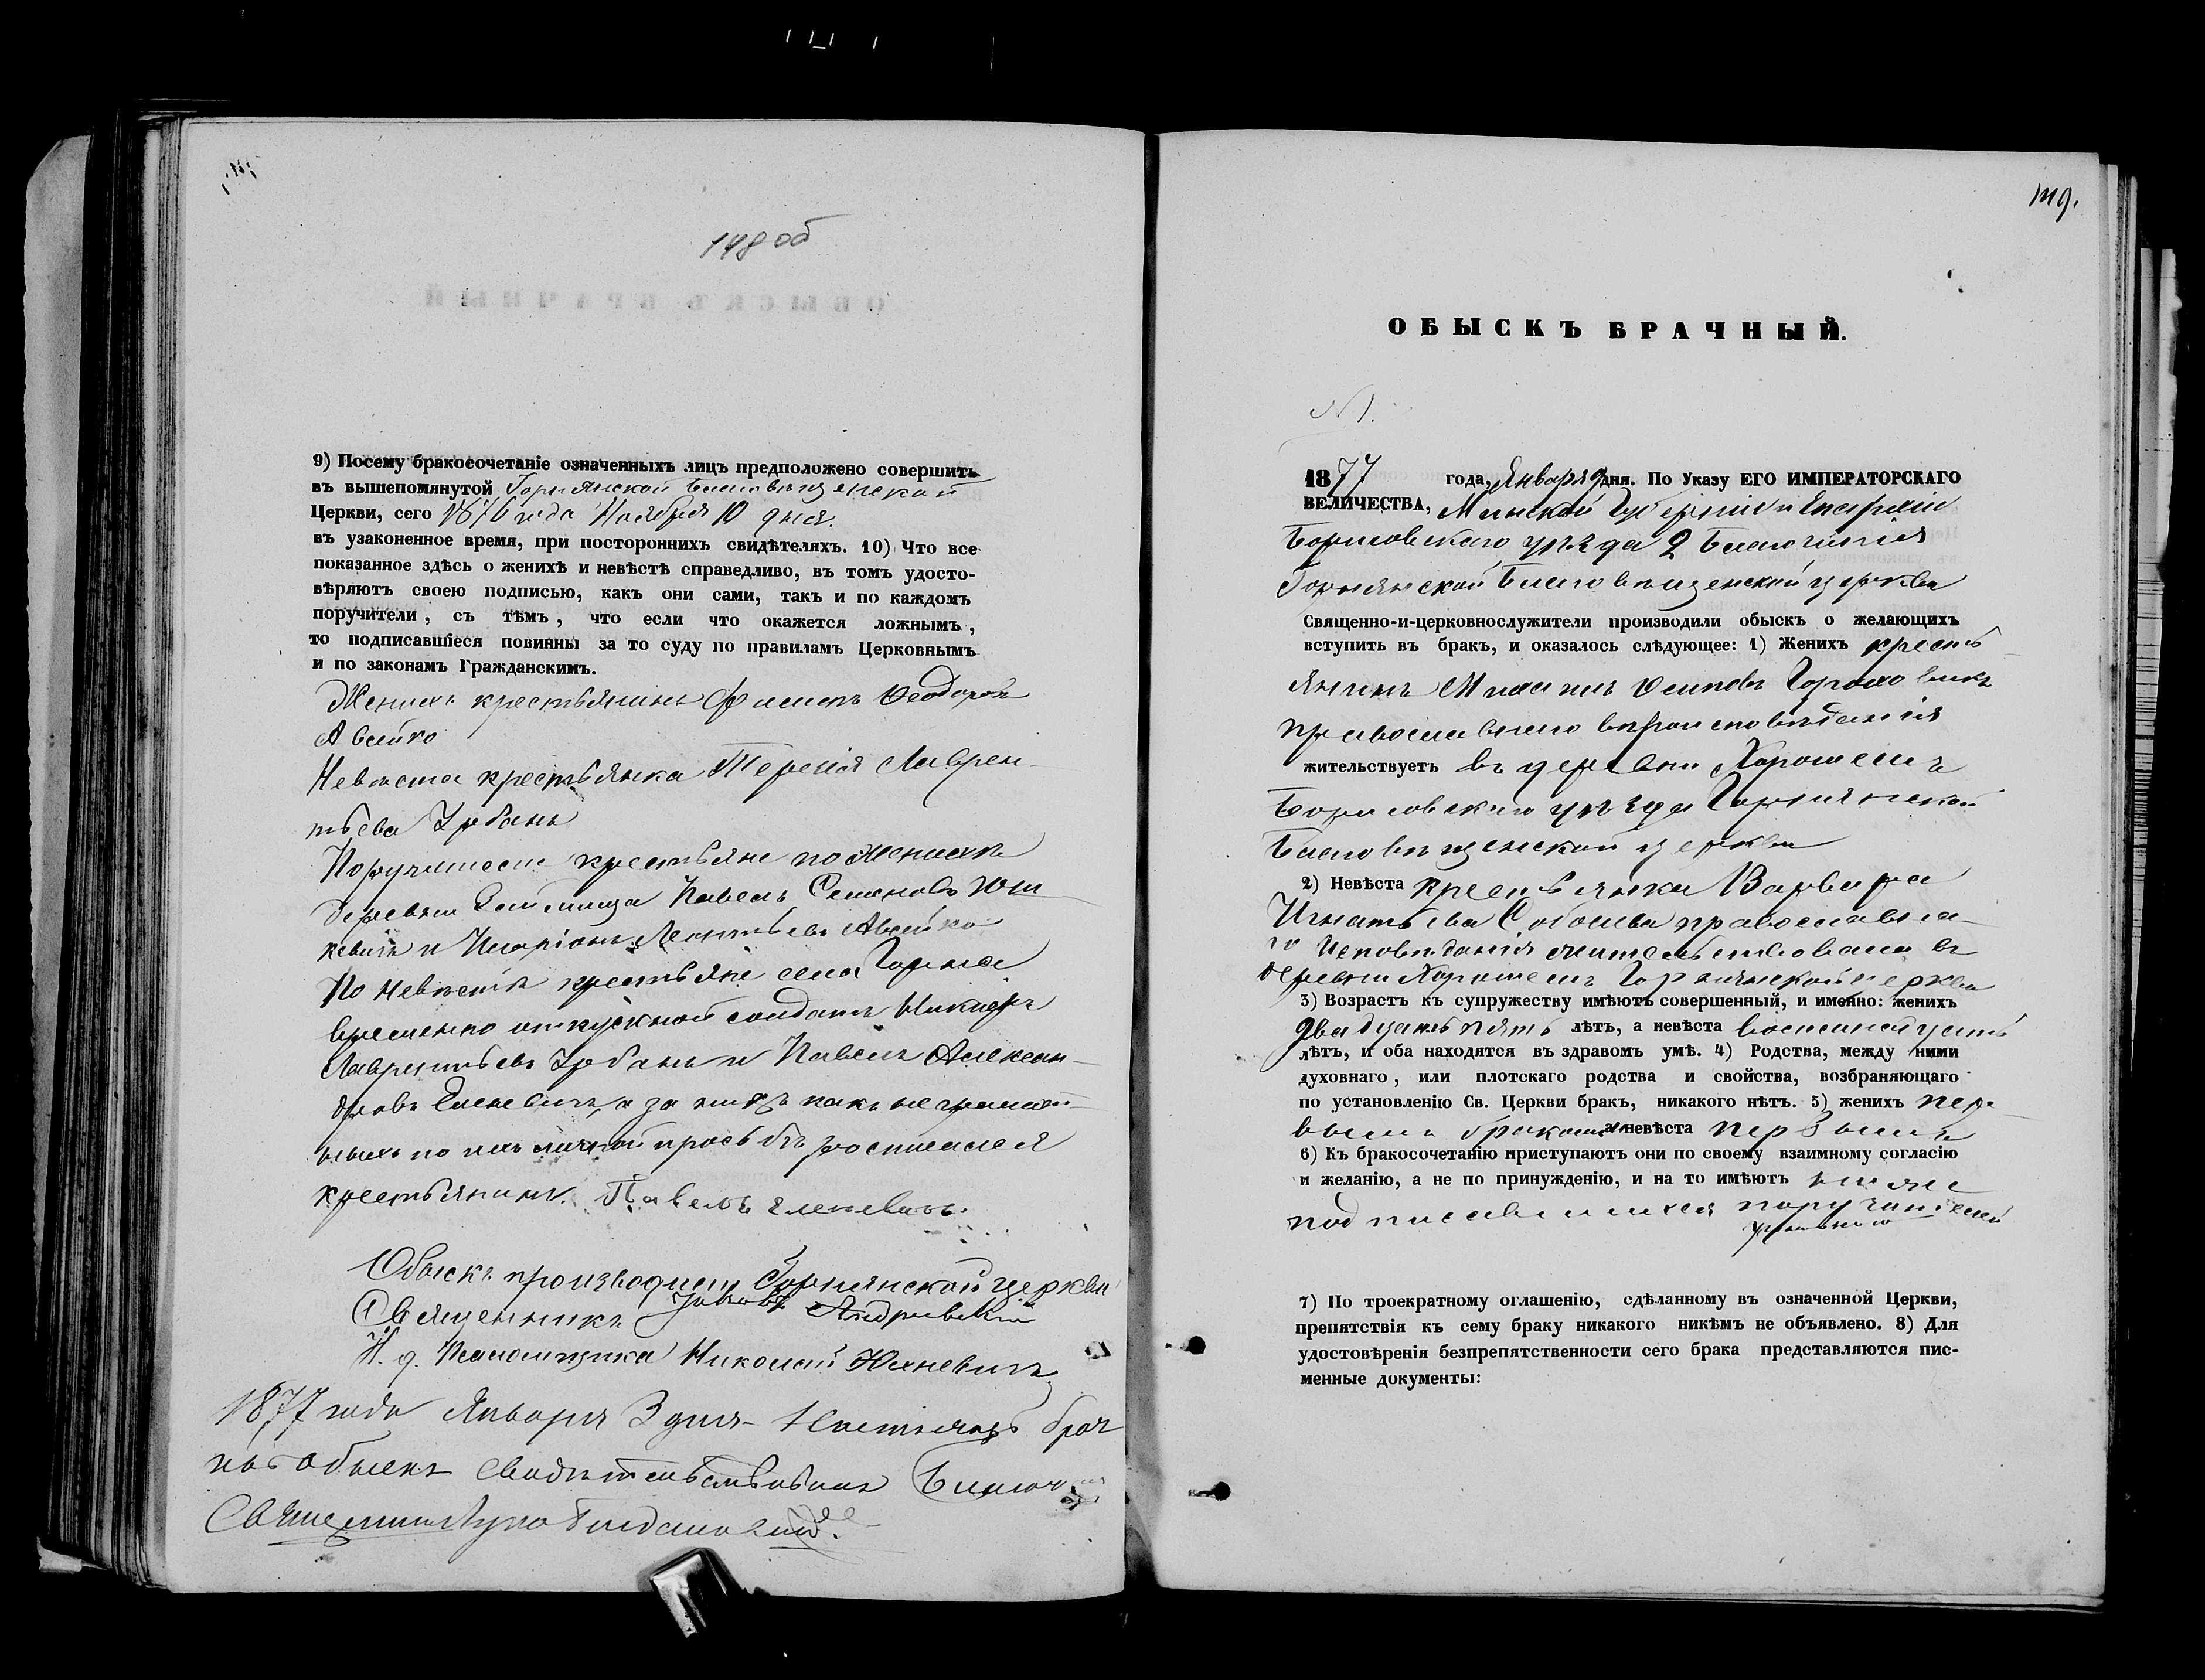 148 об
9) Посему бракосочетаніе означенныхъ лицъ предположено совершить
въ вышепомянутой Горнянской Благовѣщенской
Церкви, сего 1876 года Ноября 10 дня.
въ узаконенное время, при постороннихъ свидѣтеляхъ. 10) Что все
показанное здѣсь о женихѣ и невѣстѣ справедливо, въ томъ удосто-
вѣряютъ своею подписью, какъ они сами, такъ и по каждомъ
поручители, съ тѣмъ, что если что окажется ложнымъ,
то подписавшіеся повинны за то суду по правиламъ Церковнымъ
и по законамъ Гражданскимъ.
Женихъ крестьянинъ Филипъ Ѳеодоровъ
Авсейко
Невѣста крестьянка Терезія Лаврен-
тьева Урбанъ
Поручители крестьяне по женихѣ
деревни Павелъ Семеновъ Юш-
кевичъ и Иларіонъ Леонтьевъ Авсейко
По невѣстѣ крестьяне села Горная
временно отпускной солдатъ Никифоръ
Лаврентьевъ Урбанъ и Павелъ Алексан-
дровъ а за нихъ какъ неграмот-
ныхъ по ихъ личной прозьбѣ росписался
крестьянинъ. Павелъ
Обыскъ производили Горнянской церкви
Священникъ Андріевскій
И. д. Псаломщика Николай Юхневичъ
1877 года Января 3 дня Настоящій брач
ный обыскъ свидѣтельствовалъ
Священникъ
149.
ОБЫСКЪ БРАЧНЫЙ.
№ 1.
1877 года, Января 9 дня. По Указу ЕГО ИМПЕРАТОРСКАГО
ВЕЛИЧЕСТВА, Минской Губерніи и Епархіи
Борисовскаго уѣзда 2 Благочинія
Горнянской Благовѣщенской церкви
Священно-и-церковнослужители производили обыскъ о желающихъ
вступить въ бракъ, и оказалось слѣдующее: 1) Женихъ кресть
янинъ Михаилъ Осиповъ
православнаго вѣроисповѣданія
жительствуетъ въ деревни
Борисовскаго уѣзда Горнянской
Благовѣщенской церкви
2) Невѣста крестьянка Варвара
Игнатьева православна-
го исповѣданія жительствовала въ
деревни Горнянской церкви
3) Возрастъ къ супружеству имѣютъ совершенный, и именно: женихъ
двадцать пять лѣтъ, а невѣста восемнадцать
лѣтъ, и оба находятся въ здравомъ умѣ. 4) Родства, между ними
духовнаго, или плотскаго родства и свойства, возбраняющаго
по установленію Св. Церкви бракъ, никакого нѣтъ. 5) женихъ пер-
вымъ бракомъ а невѣста первымъ
6) Къ бракосочетанію приступаютъ они по своему взаимному согласію
и желанію, а не по принужденію, и на то имѣютъ ниже
подписавшихся поручителей
7) По троекратному оглашенію, сдѣланному въ означенной Церкви,
препятствія къ сему браку никакого никѣмъ не объявлено. 8) Для
удостовѣренія безпрепятственности сего брака представляются пис-
менные документы: